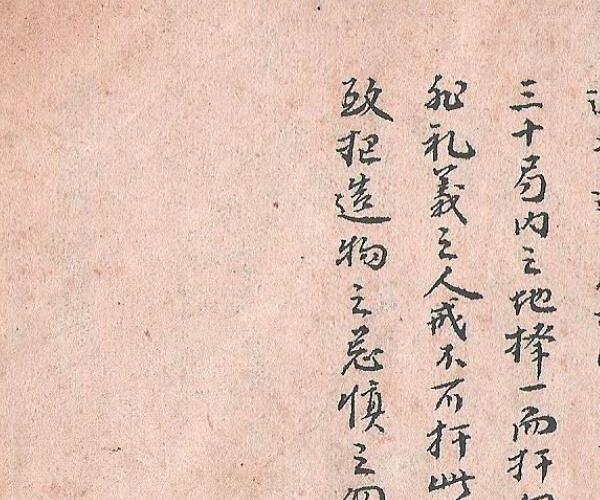 三十局内之地择一而扦
非礼義之人或不可扦此
致犯造物之忌慎之勿